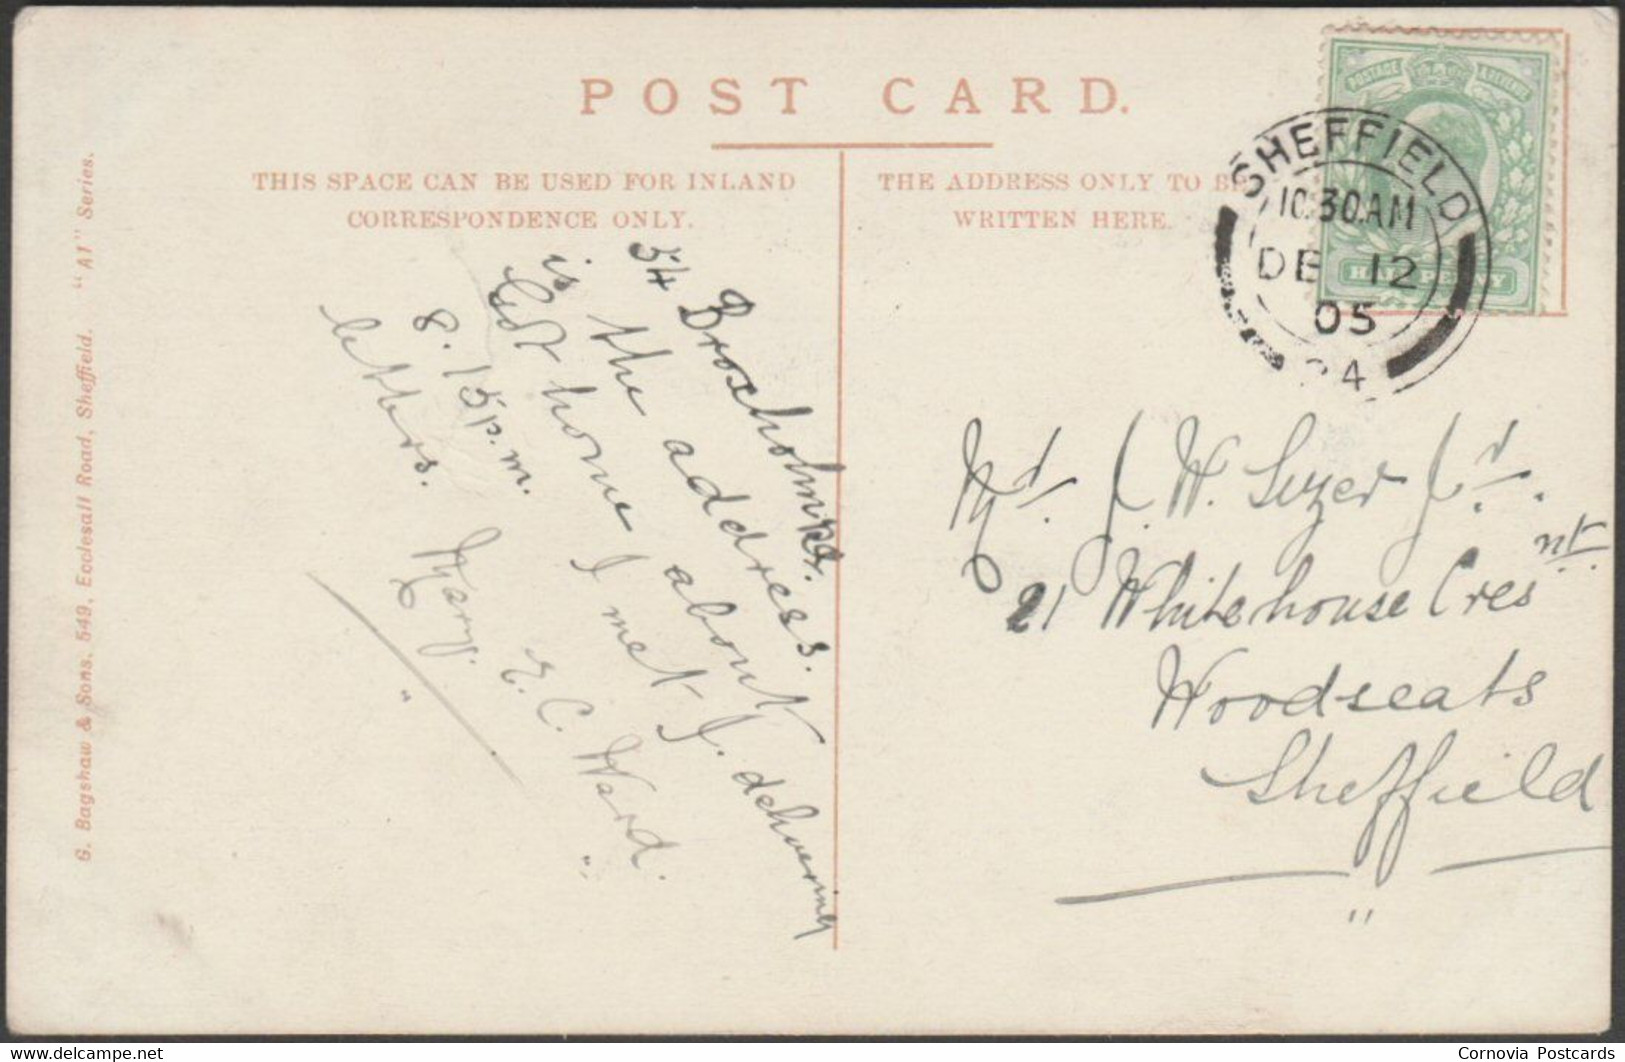 POST CARD.
THIS SPACE CAN BE USED FOR INLAND
CORRESPONDENCE ONLY.
THE ADDRESS ONLY TO BE
WRITTEN HERE.
POSTAGE & REVENUE
HALFPENNY
SHEFFIELD
10.30AM
DE 12
05
24
54 Broxholme Rd.
is the address.
Got home about
8.15 p.m. I met J. delivering
letters.
Mary. E. C. Ward.
J. W. Suzer
21 Whitehouse Cresnt.
Woodseats
Sheffield
G. Bagshaw & Sons. 549, Ecclesall Road, Sheffield. "A1" Series.
delcampe.net
Cornovia Postcards